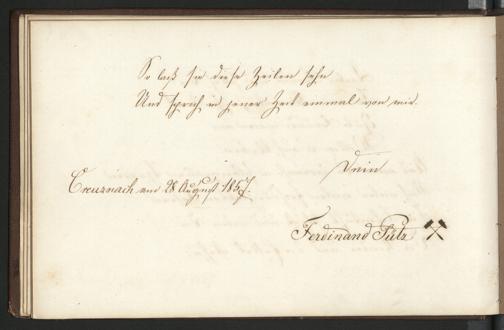 So laß sie diese Zeilen sehn
Und sprich in jener Zeit einmal von mir.
Dein
Creuznach am 28 August 1857.
Ferdinand Pütz